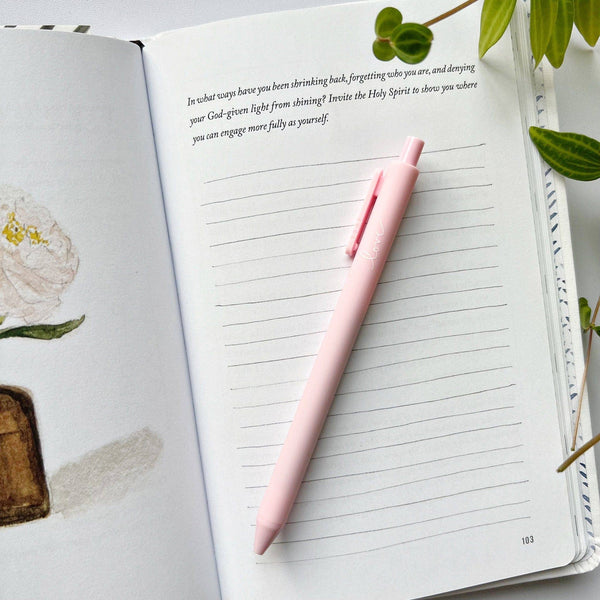 In what ways have you been shrinking back, forgetting who you are, and denying
your God-given light from shining? Invite the Holy Spirit to show you where
you can engage more fully as yourself.
love
103